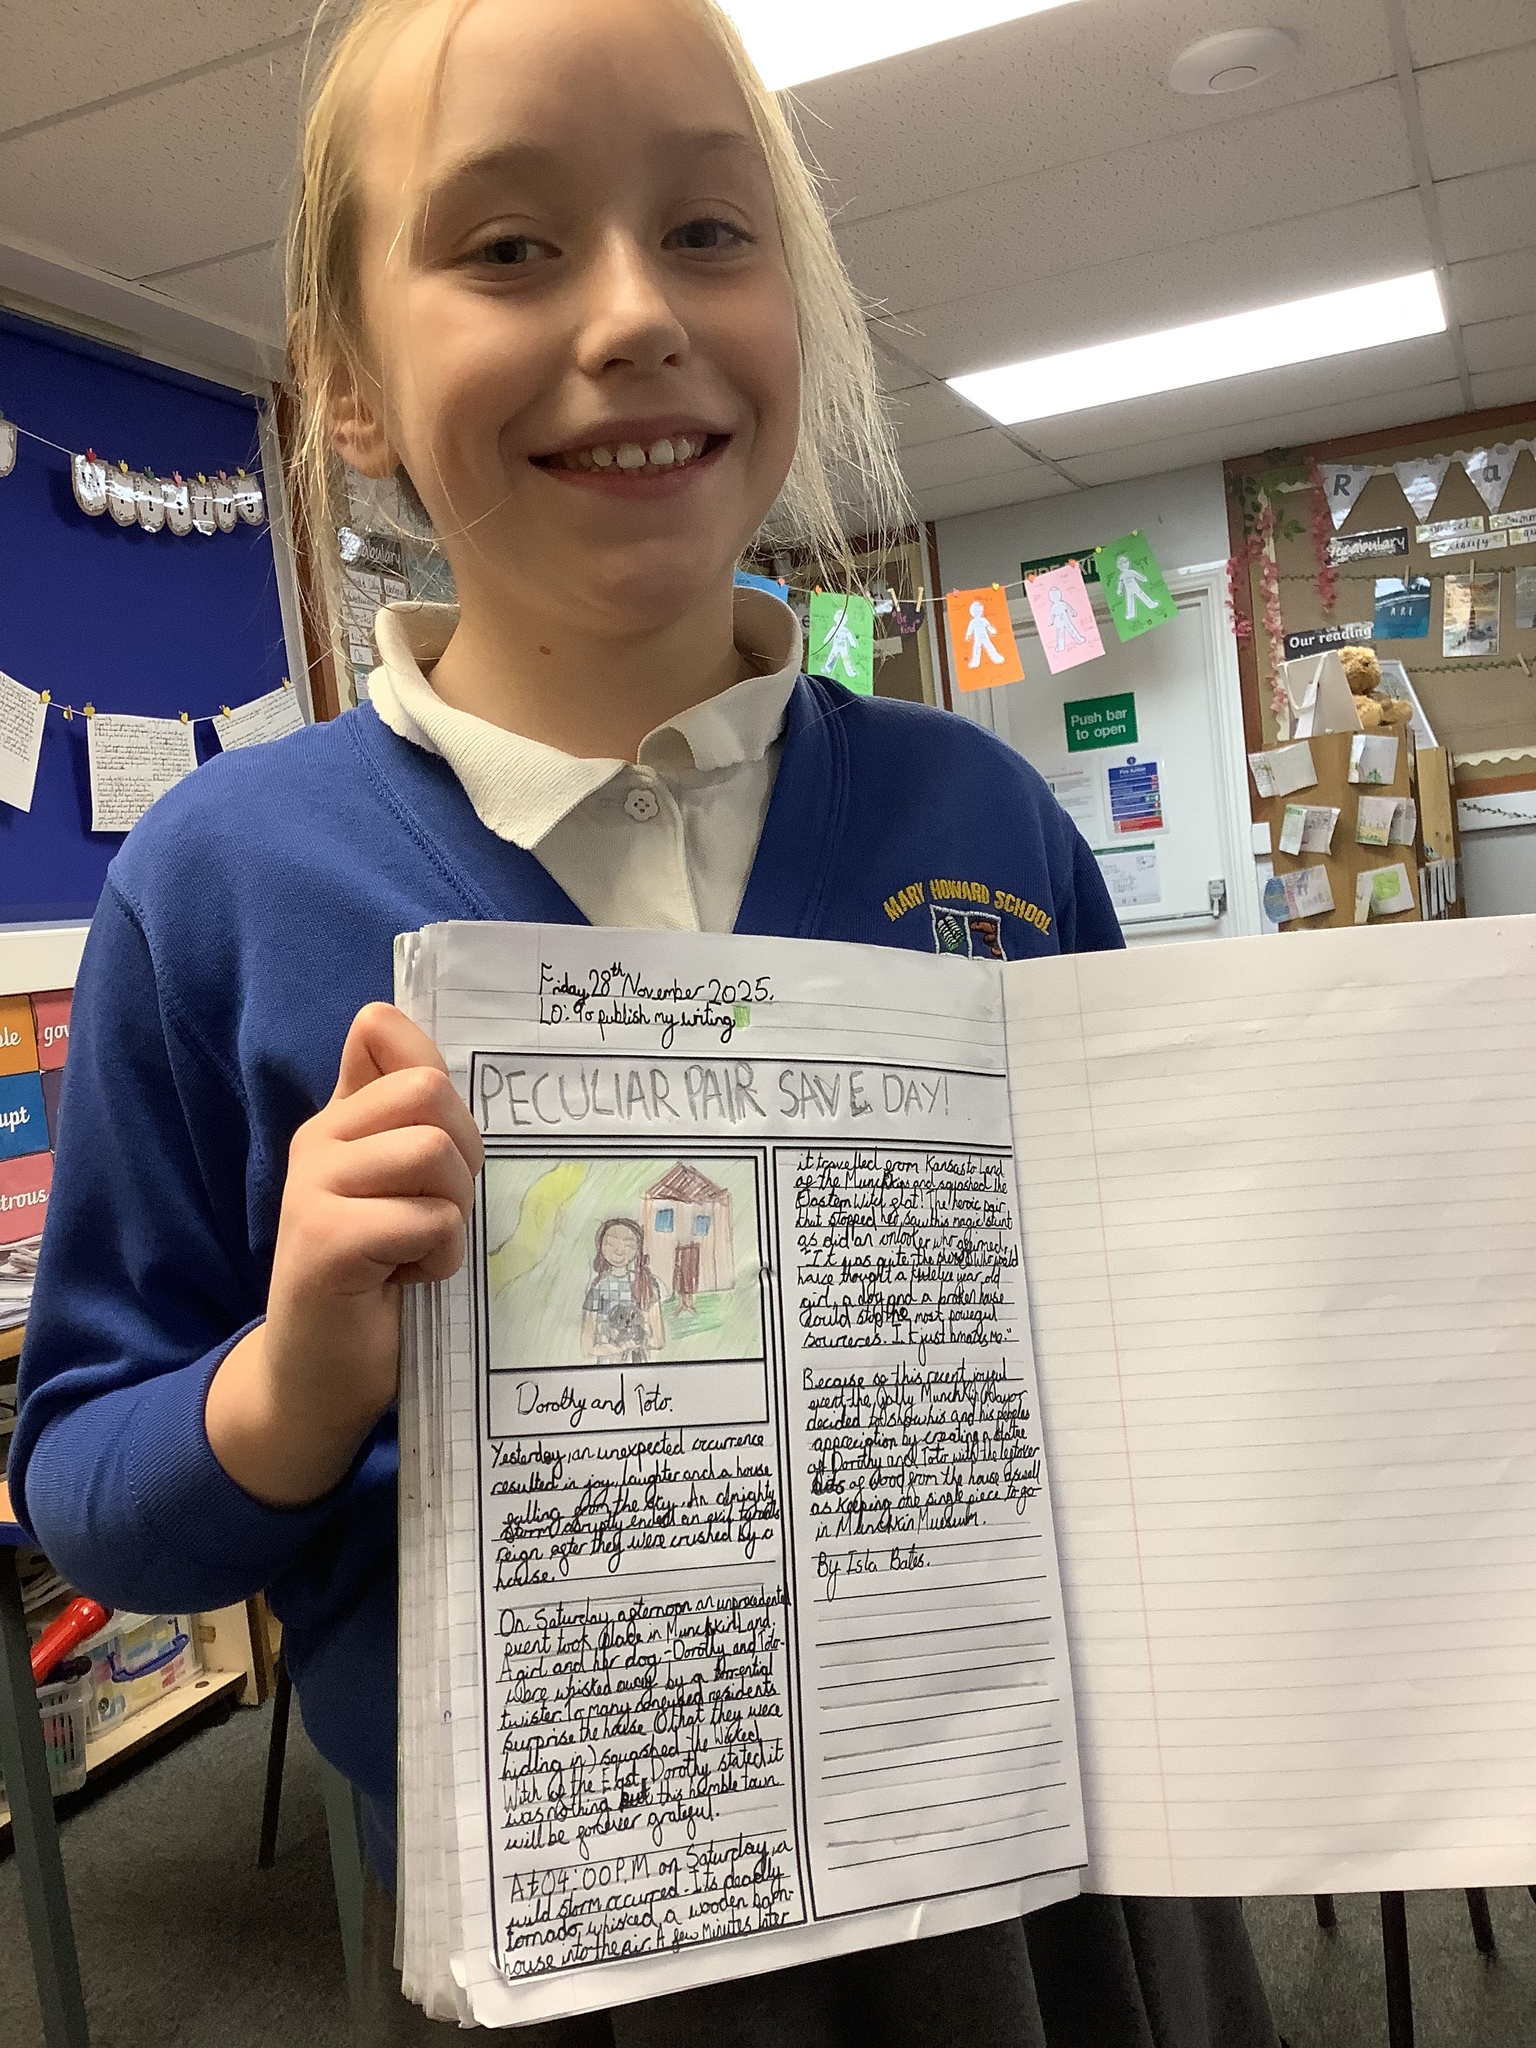 Writing
vocabulary
Be
kind
Push bar
to open
R
a
vocabulary
clarify
Our reading
ple
gov
upt
trous
MARY HOWARD SCHOOL
Friday 28th November 2025.
LO: To publish my writing
PECULIAR PAIR SAVE DAY!
Dorothy and Toto.
Yesterday, an unexpected occurrence
resulted in joy, laughter and a house
falling from the sky. An almighty
storm abruptly ended an evil
reign after they were crushed by a
house.
On Saturday afternoon an
event took place in Munchkin Land.
A girl and her dog - Dorothy and Toto -
were whisked away by a torrential
twister. To many confused residents
surprise the house (that they were
hiding in) squashed the Wicked
Witch of the East. Dorothy stated it
was nothing but this humble town
will be forever grateful.
At 04:00P.M on Saturday, a
wild storm occurred. Its deadly
tornado, whisked a wooden
house into the air. A few Minutes later
it travelled from Kansas to Land
of the Munchkins and squashed the
Eastern Witch flat! The heroic pair
that stopped her, saw this magic stunt
as did an who
"It was quite the who would
have thought a year old
girl, a dog and a broken house
could stop the most powerful
It just me."
Because of this recent joyful
event the Jolly Munchkin Mayor
decided to show his and his peoples
appreciation by creating a statue
of Dorothy and Toto with the leftover
bits of wood from the house aswell
as keeping one single piece to go
in Munchkin Museum.
By Isla Bates.